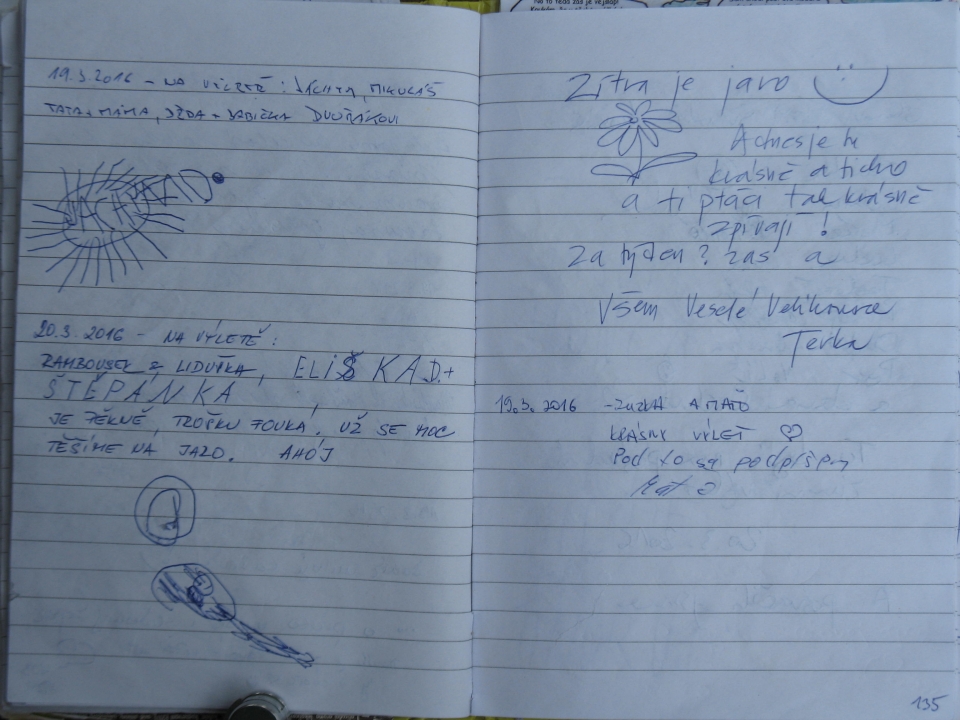 19.3.2016 - NA VÝLETĚ: VAŠÍK, MIKULÁŠ
TATA + MÁMA, DĚDA + BABIČKA DVOŘÁKOVI
20.3.2016 - NA VÝLETĚ:
RAMBOUSEK & LIDUŠKA, ELIŠKA D. +
ŠTĚPÁNKA
JE PĚKNĚ, TROŠKU FOUKÁ. UŽ SE MOC
TĚŠÍME NA JARO. AHOJ
Zítra je jaro
A dnes je tu
krásně a ticho
a ti ptáci tak krásně
zpívají!
Za týden? zas a
Všem Veselé Velikonoce
Terka
19.3. 2016 - ZUZKA A MAŤO
KRÁSNY VÝLET ♡
Pod to sa podpíšem
Maťo
135